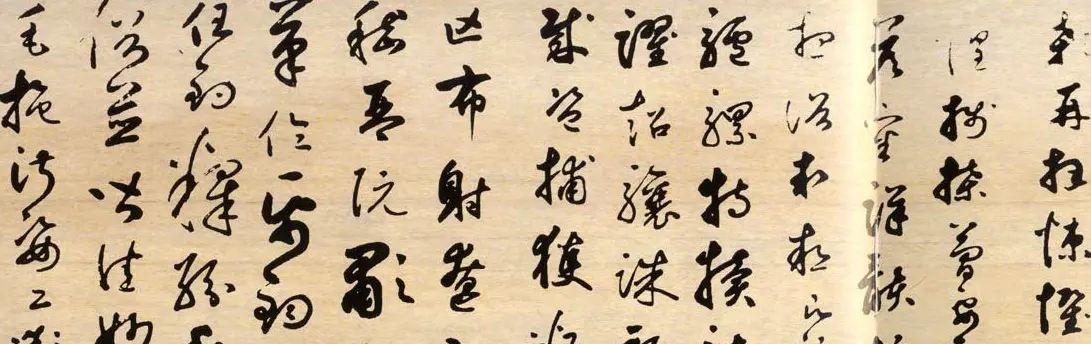 顙再拜悚懼
惶牋牒簡要
答審詳骸
想浴執熱
驢騾特犢
躍超驤誅
賊盜捕獲
亡布射遼
嵇琴阮嘯
筆倫紙鈞
任釣釋紛
俗並皆佳妙
毛施淑姿工